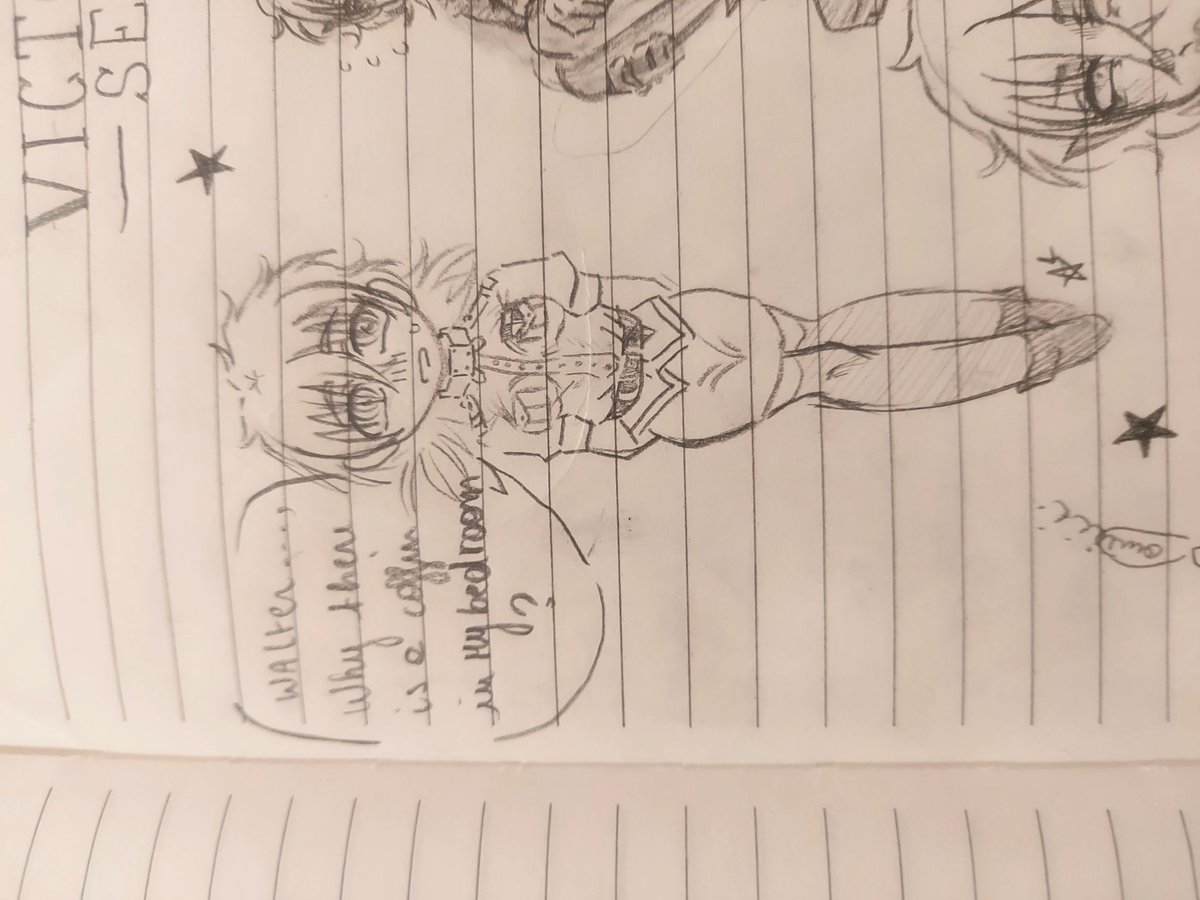 VICT
— SE
WALter....,
Why there
is a coffin
in My bedroom
?